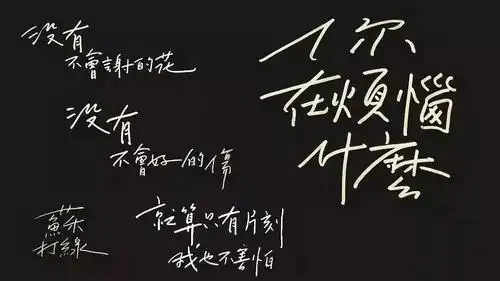 你
在煩惱
什麼
没有
不會謝的花
没有
不會好的傷
就算只有片刻
我也不害怕
蘇打綠